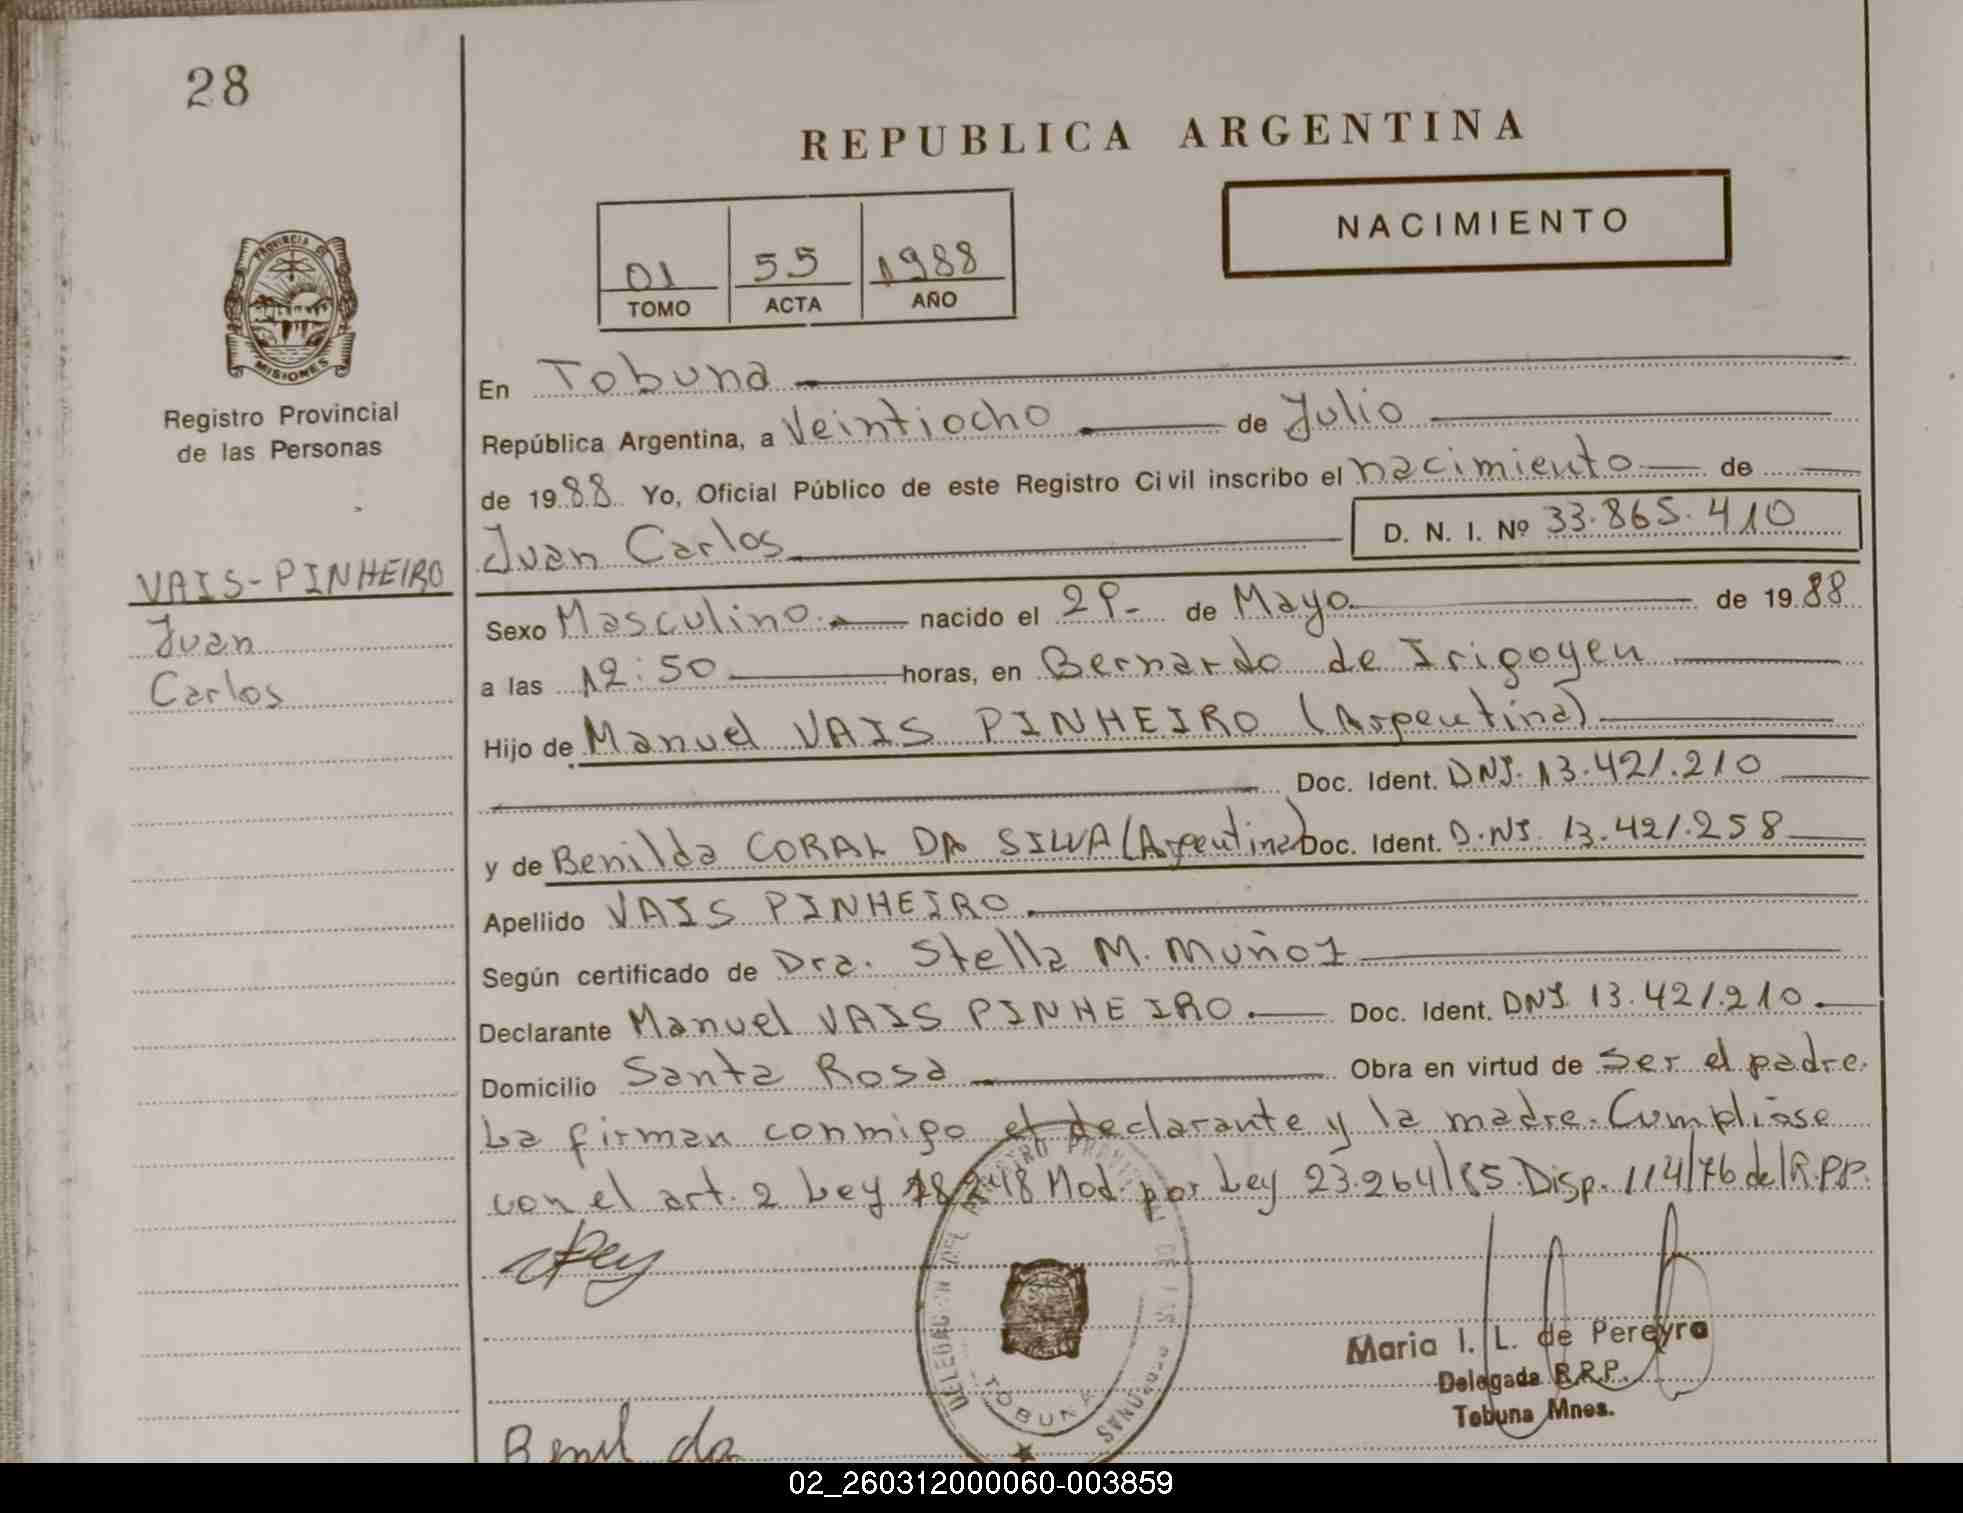 28
REPUBLICA ARGENTINA
NACIMIENTO
01 55 1988
TOMO ACTA AÑO
PROVINCIA DE
MISIONES
Registro Provincial
de las Personas
VAIS-PINHEIRO
Juan
Carlos
En Tobuna
República Argentina, a Veintiocho de Julio
de 1988 Yo, Oficial Público de este Registro Civil inscribo el nacimiento de
Juan Carlos D. N. I. Nº 33.865.410
Sexo Masculino nacido el de Mayo de 1988
a las 12:50 horas, en Bernardo de Irigoyen
Hijo de Manuel VAIS PINHEIRO (Argentina)
Doc. Ident. DNI. 13.421.210
y de Benilda CORAL DA SILVA (Argentina) Doc. Ident. D.NI. 13.421.258
Apellido VAIS PINHEIRO
Según certificado de Dra. Stella M. Muñoz
Declarante Manuel VAIS PINHEIRO. Doc. Ident. DNI. 13.421.210
Domicilio Santa Rosa Obra en virtud de ser el padre.
La firman conmigo el declarante y la madre. Cumplióse
con el art. 2 Ley 18248 Mod. por Ley 23.264/85. Disp. 114/76 del R.P.P.
DELEGACION DEL REGISTRO PROVINCIAL DE LAS PERSONAS
TOBUNA
Maria I. L. de Pereyra
Delegada R.R.P.
Tobuna Mnes.
Benilda
02_260312000060-003859